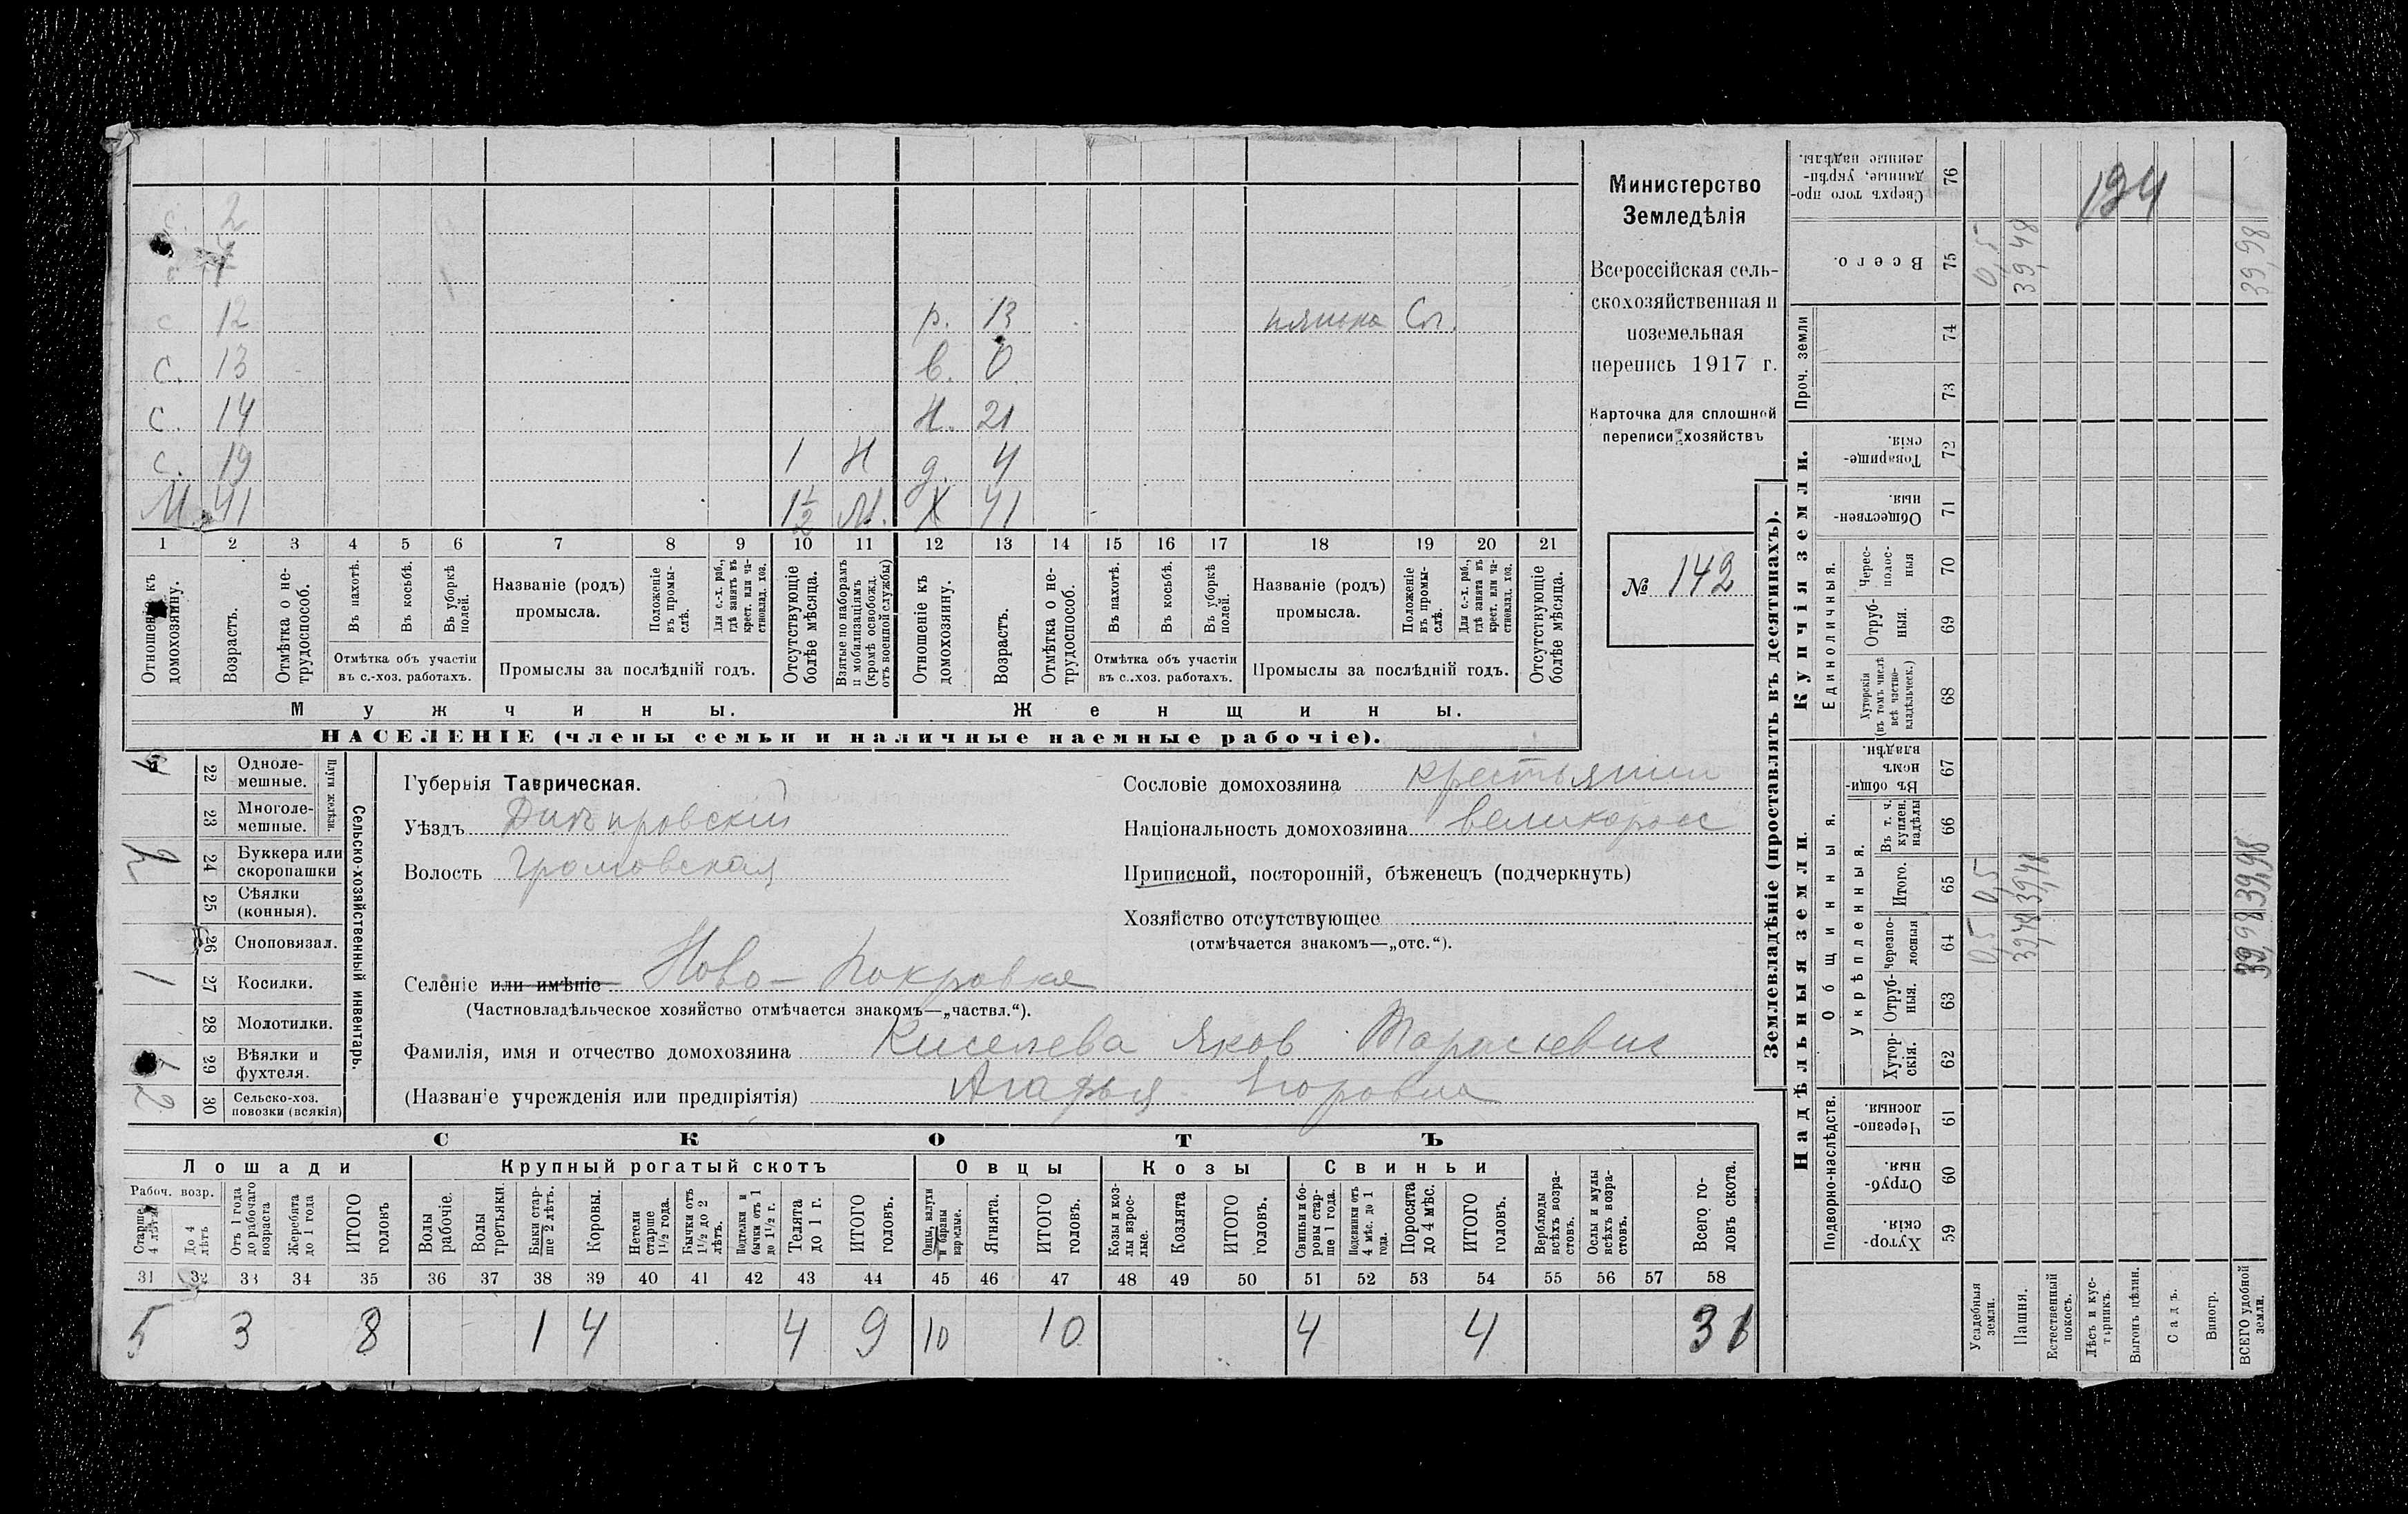 с. 2
1
с 12 р. 13 нянька Сл.
с. 13 в. 0
с. 14 н. 21
с. 19 1 Н д. 4
М. 41 1½ М. Х 41
1 2 3 4 5 6 7 8 9 10 11 12 13 14 15 16 17 18 19 20 21
Отношеніе къ домохозяину.
Возрастъ.
Отмѣтка о нетрудоспособ.
Въ пахотѣ.
Въ косьбѣ.
Въ уборкѣ полей.
Отмѣтка объ участіи
въ с.-хоз. работахъ.
Названіе (родъ)
промысла.
Положеніе въ промыслѣ.
Для с.-х. раб., гдѣ занятъ въ крест. или частновлад. хоз.
Промыслы за послѣдній годъ.
Отсутствующіе болѣе мѣсяца.
Взятые по наборамъ и мобилизаціямъ (кромѣ освобожд. отъ военной службы)
Отношеніе къ домохозяину.
Возрастъ.
Отмѣтка о нетрудоспособ.
Въ пахотѣ.
Въ косьбѣ.
Въ уборкѣ полей.
Отмѣтка объ участіи
въ с.-хоз. работахъ.
Названіе (родъ)
промысла.
Положеніе въ промыслѣ.
Для с.-х. раб., гдѣ занята въ крест. или частновлад. хоз.
Промыслы за послѣдній годъ.
Отсутствующіе болѣе мѣсяца.
Мужчины. Женщины.
НАСЕЛЕНІЕ (члены семьи и наличные наемные рабочіе).
Министерство
Земледѣлія
Всероссійская сель-
скохозяйственная и
поземельная
перепись 1917 г.
Карточка для сплошной
переписи хозяйствъ
№ 142
Сельско-хозяйственный инвентарь.
Плуги желѣзн.
22 Одноле-
мешные.
23 Многоле-
мешные.
24 Буккера или
скоропашки
25 Сѣялки
(конныя).
26 Сноповязал.
1 27 Косилки.
28 Молотилки.
1 29 Вѣялки и
фухтеля.
2 30 Сельско-хоз.
повозки (всякія)
Губернія Таврическая.
Уѣздъ Днѣпровскій
Волость Громовская
Селеніе или имѣніе Ново-Покровка
(Частновладѣльческое хозяйство отмѣчается знакомъ—„частвл.“).
Фамилія, имя и отчество домохозяина Киселева Яков Тарасьевич
(Названіе учрежденія или предпріятія) Агафья Егоровна
Сословіе домохозяина крестьянин
Національность домохозяина великоросс
Приписной, посторонній, бѣженецъ (подчеркнуть)
Хозяйство отсутствующее
(отмѣчается знакомъ—„отс.“).
СКОТЪ
Лошади Крупный рогатый скотъ Овцы Козы Свиньи
Рабоч. возр.
Старше 4 лѣтъ
До 4 лѣтъ
Отъ 1 года до рабочаго возраста
Жеребята до 1 года
ИТОГО головъ
Волы рабочіе.
Волы третьяки.
Быки старше 2 лѣтъ.
Коровы.
Нетели старше 1½ года.
Бычки отъ 1½ до 2 лѣтъ.
Подтелки и бычки отъ 1 до 1½ г.
Телята до 1 г.
ИТОГО головъ.
Овцы, валухи и бараны взрослые.
Ягнята.
ИТОГО головъ.
Козы и козлы взрослые.
Козлята
ИТОГО головъ.
Свиньи и боровы старше 1 года.
Подсвинки отъ 4 мѣс. до 1 года.
Поросята до 4 мѣс.
ИТОГО головъ.
Верблюды всѣхъ возрастовъ.
Ослы и мулы всѣхъ возрастовъ.
Всего головъ скота.
31 32 33 34 35 36 37 38 39 40 41 42 43 44 45 46 47 48 49 50 51 52 53 54 55 56 57 58
5 3 8 1 4 4 9 10 10 4 4 31
Землевладѣніе (проставлять въ десятинахъ).
Надѣльныя земли
Купчія земли.
Проч. земли
Всего.
Сверхъ того проданные, укрѣпленные надѣлы.
Товарищескія.
Общественныя.
Единоличныя.
Чересполосныя
Отрубныя.
Хуторскія (въ томъ числѣ всѣ частновладѣльческ.)
Общинныя.
Въ общинномъ владѣн.
Укрѣпленныя.
Въ т. ч. куплен. надѣлы
Итого.
Черезполосныя
Отрубныя.
Хуторскія.
Подворно-наслѣдств.
Черезполосныя
Отрубныя.
Хуторскія.
76 75 74 73 72 71 70 69 68 67 66 65 64 63 62 61 60 59
Усадебныя земли.
Пашня.
Естественный покосъ.
Лѣсъ и кустарникъ.
Выгонъ цѣлин.
Садъ.
Виногр.
ВСЕГО удобной земли.
0,5 39,48 39,98
0,5 39,48 39,98
0,5 39,48 39,98
194